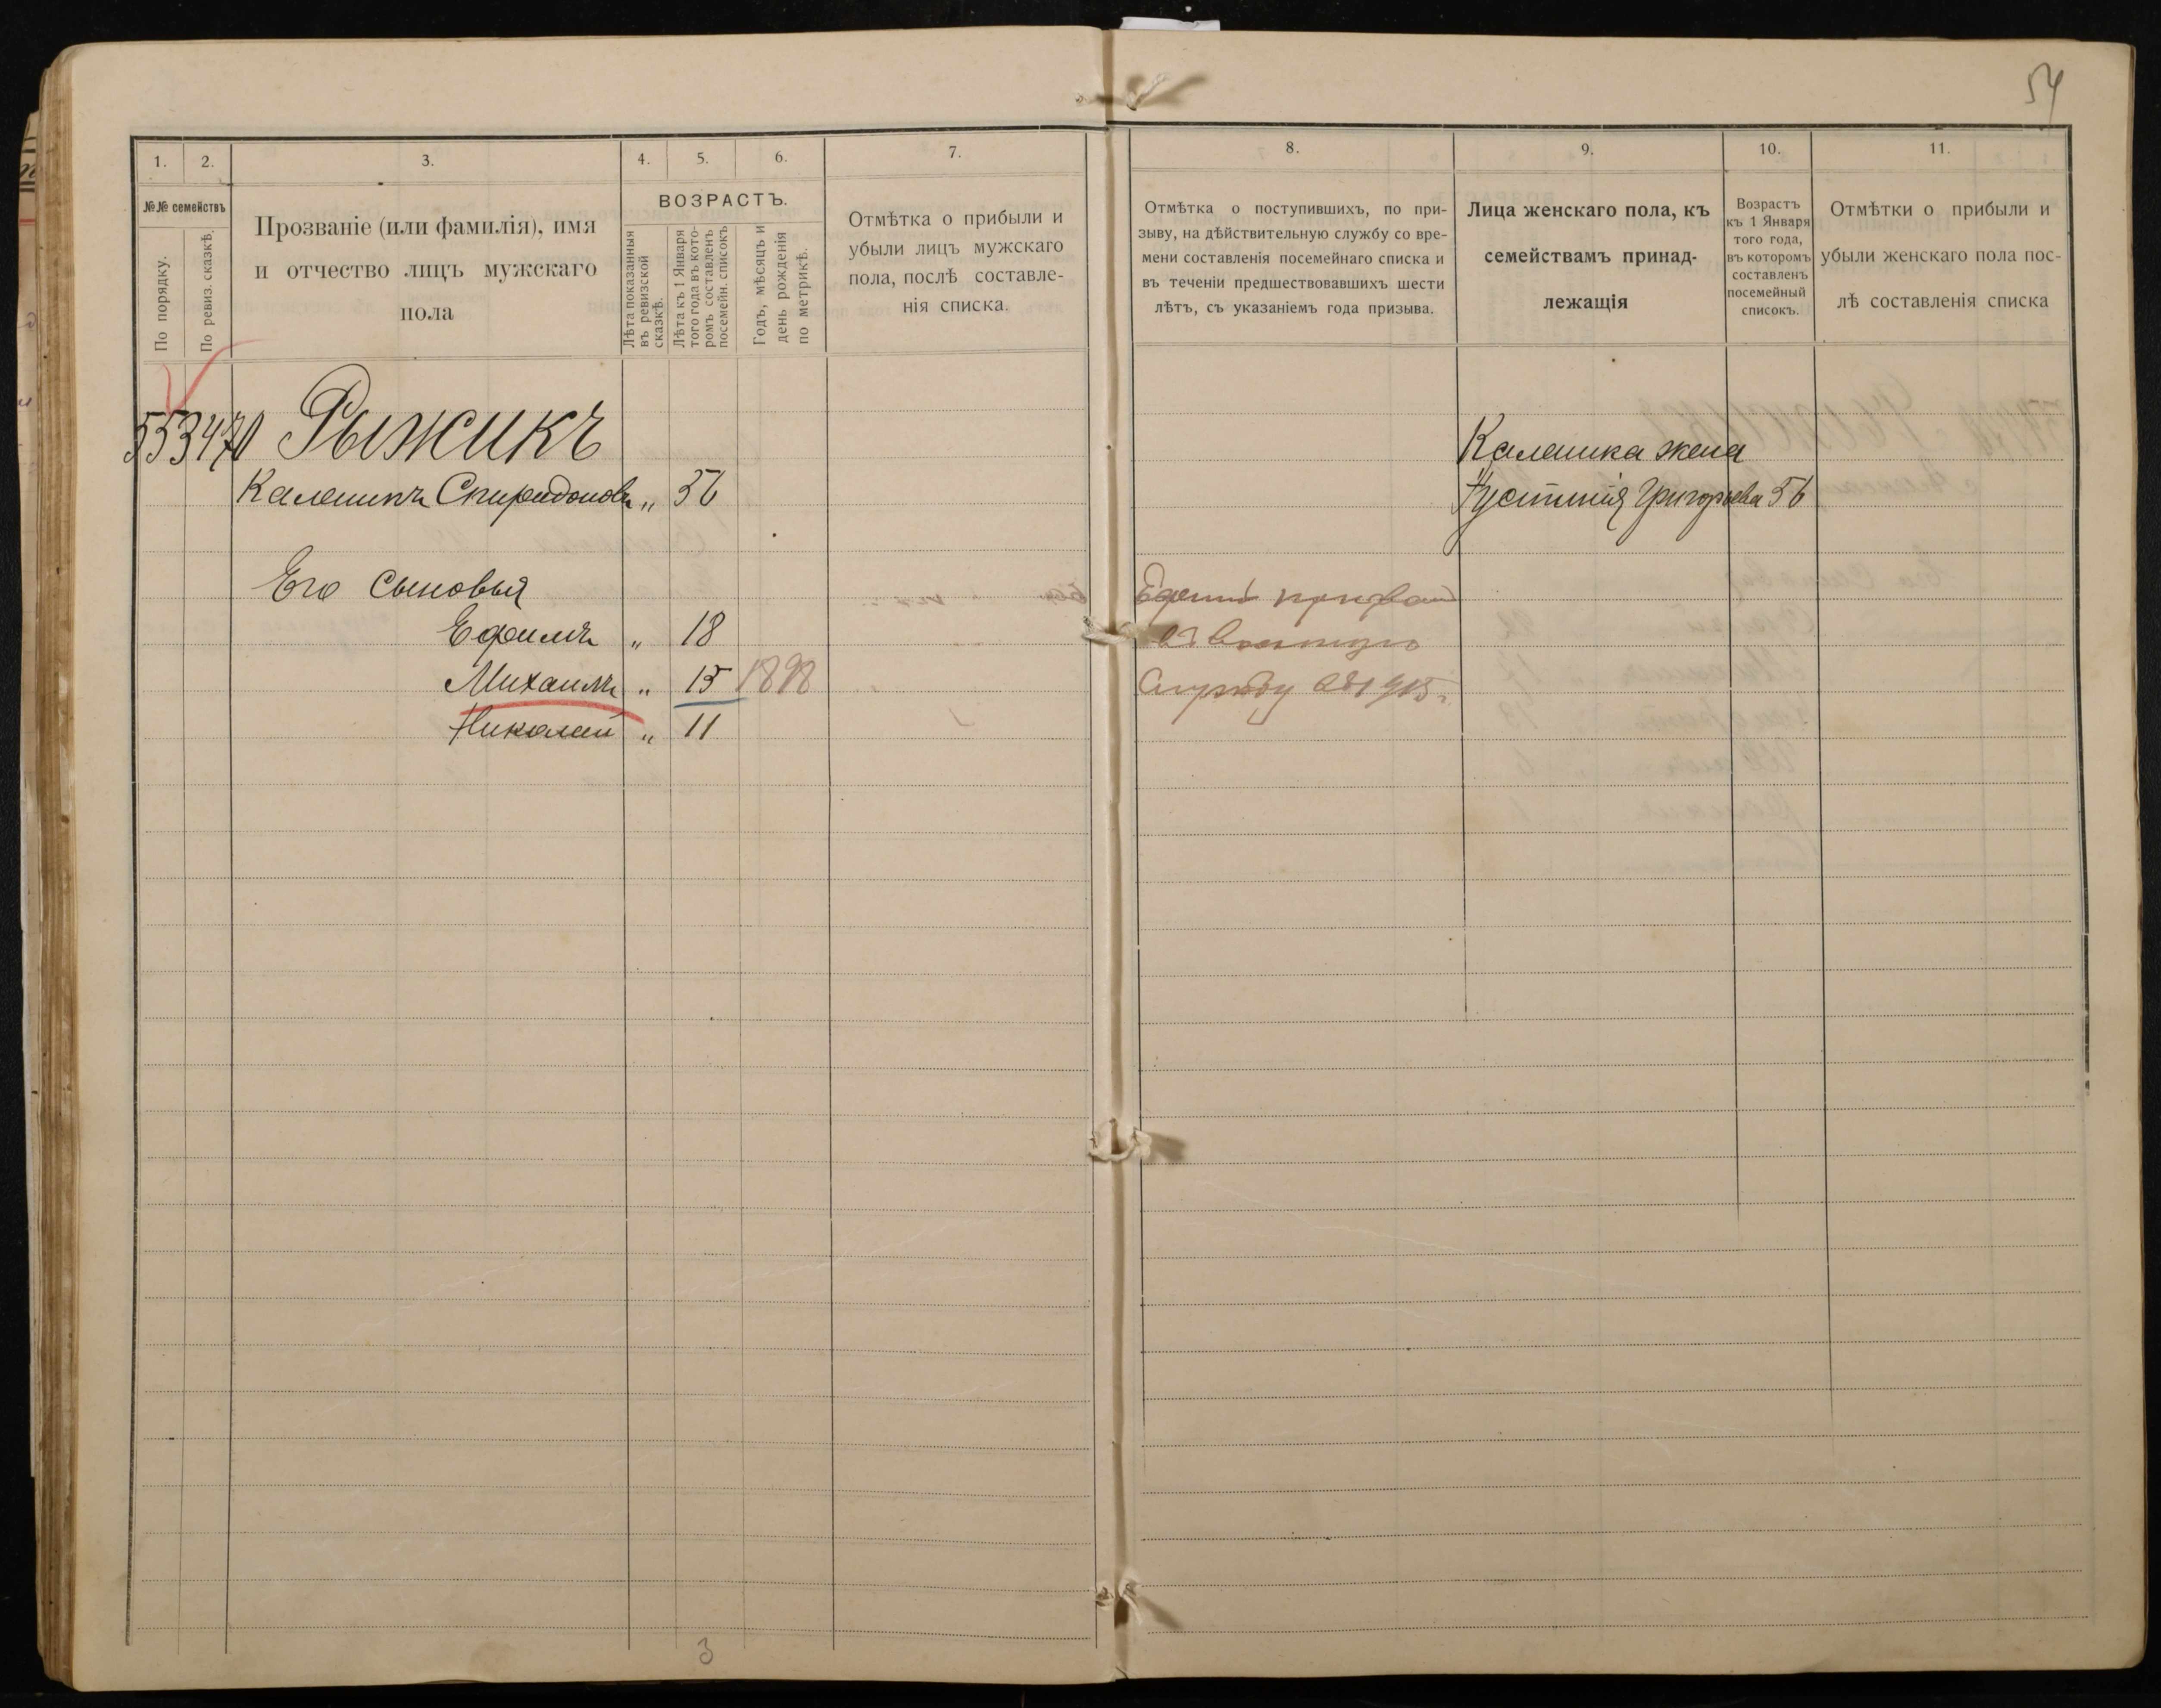 54
1.
2.
3.
4.
5.
6.
7.
№№ семействъ
По порядку.
По ревиз. сказкѣ.
Прозваніе (или фамилія), имя
и отчество лицъ мужскаго
пола
ВОЗРАСТЪ.
Лѣта показанныя
въ ревизской
сказкѣ.
Лѣта къ 1 Января
того года въ кото-
ромъ составленъ
посемейн. списокъ
Годъ, мѣсяцъ и
день рожденія
по метрикѣ.
Отмѣтка о прибыли и
убыли лицъ мужскаго
пола, послѣ составле-
нія списка.
Рыжикъ
Каленикъ Спиридоновъ „ 56
Его Сыновья
Ефимъ „ 18
Михаилъ „ 15 1898
Николай „ 11
3
8.
9.
10.
11.
Отмѣтка о поступившихъ, по при-
зыву, на дѣйствительную службу со вре-
мени составленія посемейнаго списка и
въ теченіи предшествовавшихъ шести
лѣтъ, съ указаніемъ года призыва.
Лица женскаго пола, къ
семействамъ принад-
лежащія
Возрастъ
къ 1 Января
того года,
въ которомъ
составленъ
посемейный
списокъ.
Отмѣтки о прибыли и
убыли женскаго пола пос-
лѣ составленія списка
Каленика жена
Устинія Григорьева 56
Ефимъ призван
въ военную
Службу въ 1915 г.